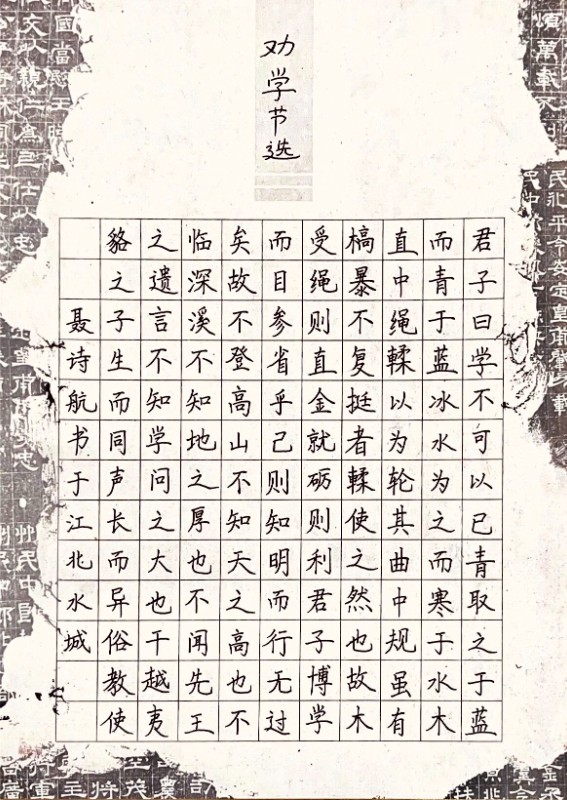 劝学节选
君子曰学不可以已青取之于蓝
而青于蓝冰水为之而寒于水木
直中绳輮以为轮其曲中规虽有
槁暴不复挺者輮使之然也故木
受绳则直金就砺则利君子博学
而目参省乎己则知明而行无过
矣故不登高山不知天之高也不
临深溪不知地之厚也不闻先王
之遗言不知学问之大也干越夷
貉之子生而同声长而异俗教使
聂诗航书于江北水城